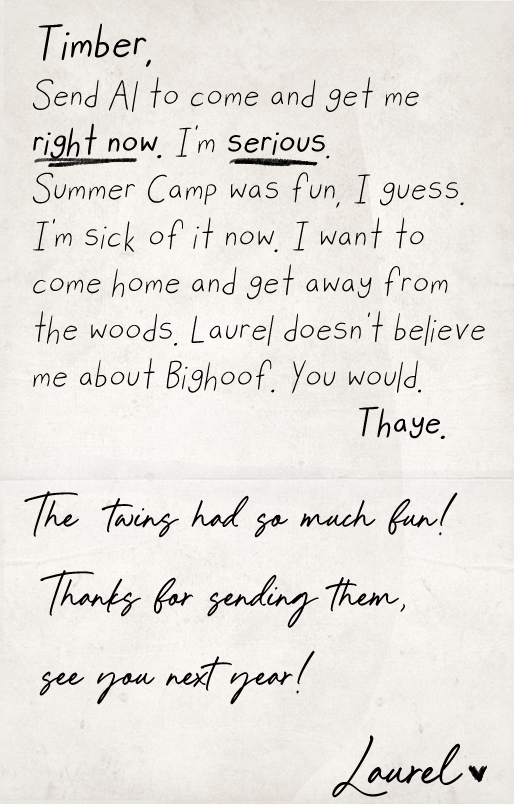 Timber,
Send Al to come and get me
right now. I'm serious.
Summer Camp was fun, I guess.
I'm sick of it now. I want to
come home and get away from
the woods. Laurel doesn't believe
me about Bighoof. You would.
Thaye.
The twins had so much fun!
Thanks for sending them,
see you next year!
Laurel ♥